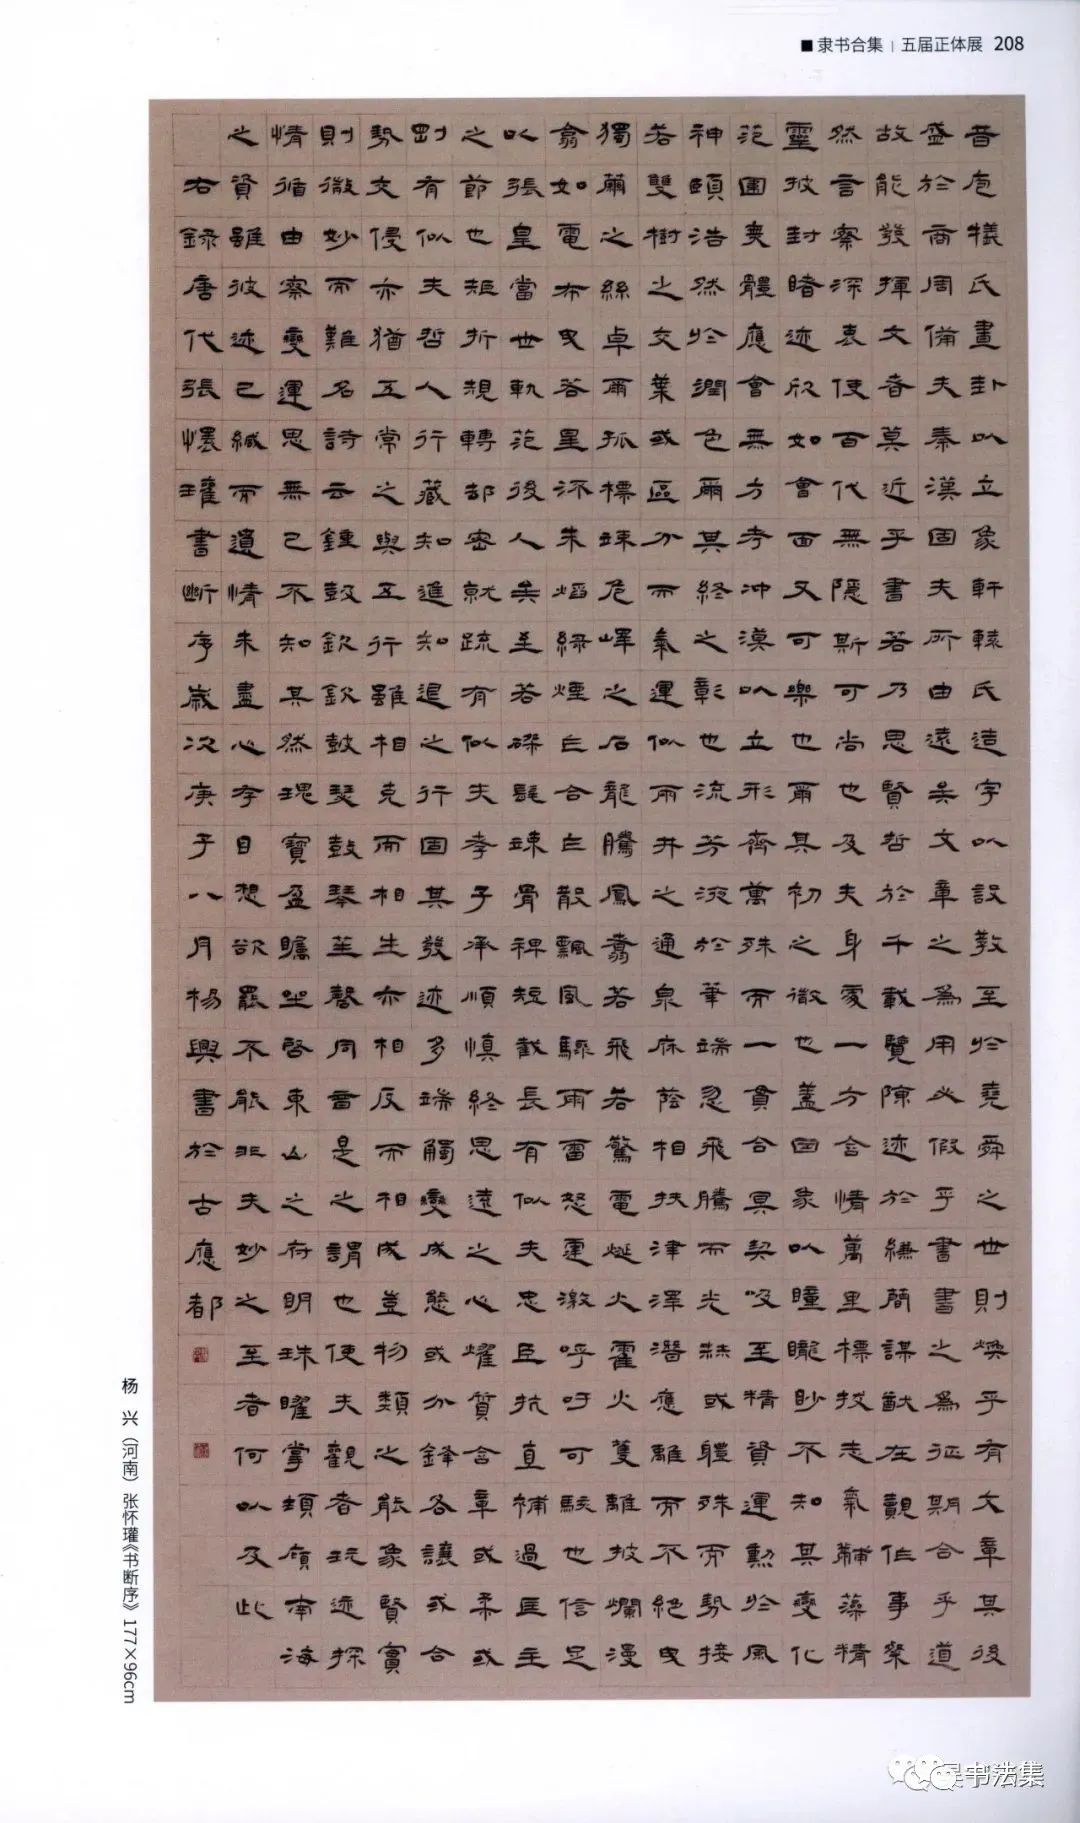 ■隶书合集 | 五届正体展 208
昔庖犧氏畫卦以立象軒轅氏造字以設教至於堯舜之世則煥乎有文章其後
盛於商周備夫秦漢固夫所由遠矣文章之為用必假乎書書之為征期合乎道
故能發揮文者莫近乎書若乃思賢哲於千載覽陳迹於縑簡謀猷在覿作事粲
然言察深衷使百代無隱斯可尚也及夫身處一方含情萬里標拔志氣黼藻精
靈披封睹迹欣如會面又可樂也爾其初之微也蓋因象以瞳矓眇不知其變化
范圍奭體應會無方考冲漠以立形齊萬殊而一貫合冥契吸至精資運勳於風
神頤浩然於潤色爾其終之彰也流芳液於筆端忽飛騰而光赫或體殊而勢接
若雙樹之交葉或區分而氣運似兩井之通泉庥蔭相扶津澤潛應離而不絕曳
獨繭之絲卓爾孤標竦危峄之石龍騰鳳翥若飛若驚電烻火霍火蒦離披爛漫
翕如電布曳若星流朱焰綠煙乍合乍散飄風驟雨雷怒霆激呼吁可駭也信足
以張皇當世軌范後人矣至若磔髦竦骨裨短截長有似夫忠臣抗直補過匡主
之節也矩折規轉却密就疏有似夫孝子承順慎終思遠之心耀質含章或柔或
剛有似夫哲人行藏知進知退之行固其發迹多端觸變成態或分鋒各讓或合
勢交侵亦猶五常之與五行雖相克而相生亦相反而相成豈物類之能象賢實
則微妙而難名詩云鍾鼓欽欽鼓瑟鼓琴笙磬同音是之謂也使夫觀者玩迹探
情循由察變運思無已不知其然瑰寶盈矚坐啓東山之府明珠曜掌頃傾南海
之資雖彼迹已緘而遺情未盡心存目想欲罷不能非夫妙之至者何以及此
右錄唐代張懷瓘書斷序歲次庚子八月楊興書於古應都
杨 兴（河南）张怀瓘《书断序》177×96cm
书法集